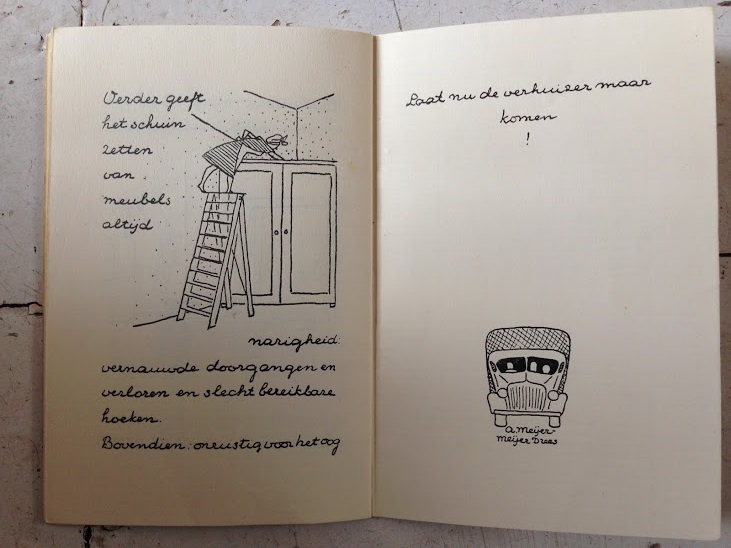 Verder geeft
het schuin
zetten
van
meubels
altijd
narigheid:
vernauwde doorgangen en
verloren en slecht bereikbare
hoeken.
Bovendien: onrustig voor het oog
Laat nu de verhuizer maar
komen
!
A. Meijer-
Meijer Drees